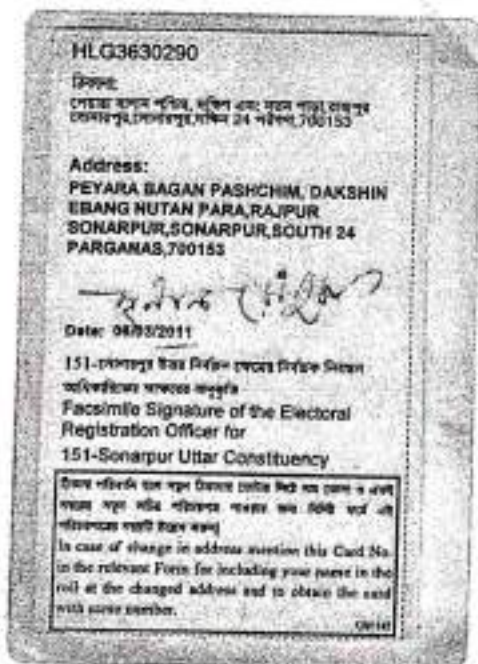 HLG3630290
ঠিকানা:
পেয়ারা বাগান পশ্চিম, দক্ষিণ এবং নূতন পাড়া, রাজপুর
সোনারপুর,সোনারপুর,দক্ষিণ 24 পরগনা,700153
Address:
PEYARA BAGAN PASHCHIM, DAKSHIN
EBANG NUTAN PARA,RAJPUR
SONARPUR,SONARPUR,SOUTH 24
PARGANAS,700153
Date: 06/03/2011
151-সোনারপুর উত্তর নির্বাচন ক্ষেত্রের নির্বাচক নিবন্ধন
আধিকারিকের স্বাক্ষরের অনুকৃতি
Facsimile Signature of the Electoral
Registration Officer for
151-Sonarpur Uttar Constituency
ঠিকানা পরিবর্তন হলে নতুন ঠিকানায়
In case of change in address mention this Card No.
in the relevant Form for including your name in the
roll at the changed address and to obtain the card
with same number.